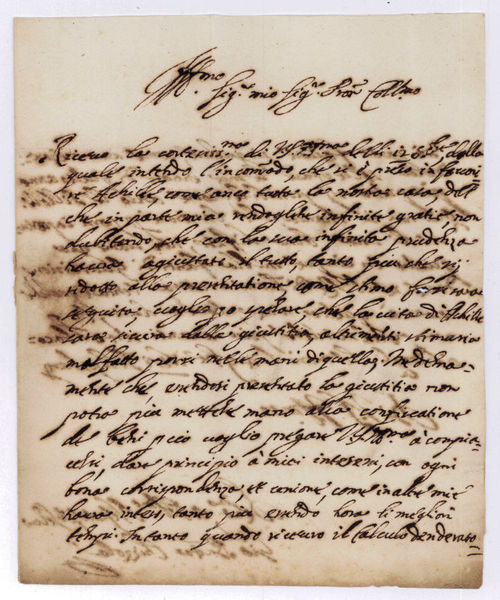 Ill.mo
Sig.r mio Sig.r Pron Coll.mo
Ricevo la cortesiss.ma di VS Ill.ma delli 12 dalla
quale intendo l'incomodo, che si è preso in favorir
Achille, come anco tutta la nostra casa, del
che in parte mia rendogliene infinite gratie, non
dubitando, che con la sua infinita prudenza
haverà agiustati il tutto, tanto più che ri
alla presentatione come stimo sarà
seguita, voglio sperare, che la vita di Achille
sarà sicura della giustitia, altrimenti stimaria
malfatto porsi nelle mani di quella; Medema
mente che essendosi presentato la giustitia non
potrà più mettere mano alla confiscatione
di beni, voglio pregare VS Ill.ma à compia
cersi, dare principio à miei interessi, con ogni
bona corrispondenza, et unione, come in altre mie
havrà inteso, tanto più essendo hora li megliori
tempi. In tanto quando ricevero il Calculo desiderato